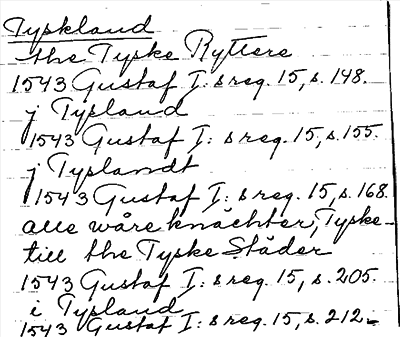 Tyskland
the Tyske Ryttere
1543 Gustaf I:s reg. 15, s. 148.
j Tysland
1543 Gustaf I:s reg. 15, s. 155.
j Tyslandt
1543 Gustaf I:s reg. 15, s. 168.
alle wåre knächter, Tyske-
till the Tyske Städer
1543 Gustaf I:s reg. 15, s. 205.
i Tysland
1543 Gustaf I:s reg. 15, s. 212.-